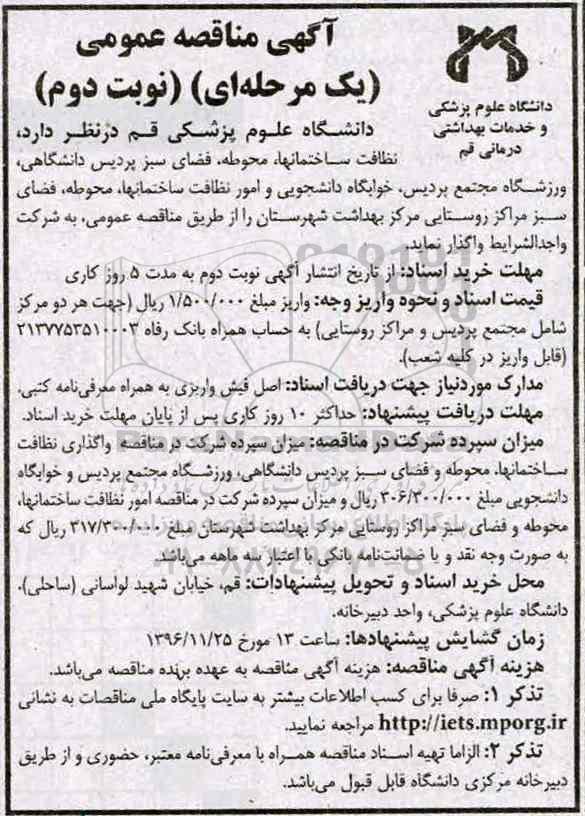 آگهی مناقصه عمومی
(یک مرحله‌ای) (نوبت دوم)
دانشگاه علوم پزشکی
و خدمات بهداشتی
درمانی قم
دانشگاه علوم پزشکی قم درنظر دارد،
نظافت ساختمانها، محوطه، فضای سبز پردیس دانشگاهی،
ورزشگاه مجتمع پردیس، خوابگاه دانشجویی و امور نظافت ساختمانها، محوطه، فضای
سبز مراکز روستایی مرکز بهداشت شهرستان را از طریق مناقصه عمومی، به شرکت
واجدالشرایط واگذار نماید.
مهلت خرید اسناد: از تاریخ انتشار آگهی نوبت دوم به مدت ۵ روز کاری
قیمت اسناد و نحوه واریز وجه: واریز مبلغ ۱/۵۰۰/۰۰۰ ریال (جهت هر دو مرکز
شامل مجتمع پردیس و مراکز روستایی) به حساب همراه بانک رفاه ۲۱۳۷۷۵۳۵۱۰۰۰۳
(قابل واریز در کلیه شعب).
مدارک موردنیاز جهت دریافت اسناد: اصل فیش واریزی به همراه معرفی‌نامه کتبی.
مهلت دریافت پیشنهاد: حداکثر ۱۰ روز کاری پس از پایان مهلت خرید اسناد.
میزان سپرده شرکت در مناقصه: میزان سپرده شرکت در مناقصه واگذاری نظافت
ساختمانها، محوطه و فضای سبز پردیس دانشگاهی، ورزشگاه مجتمع پردیس و خوابگاه
دانشجویی مبلغ ۳۰۶/۳۰۰/۰۰۰ ریال و میزان سپرده شرکت در مناقصه امور نظافت ساختمانها،
محوطه و فضای سبز مراکز روستایی مرکز بهداشت شهرستان مبلغ ۳۱۷/۳۰۰/۰۰۰ ریال که
به صورت وجه نقد و یا ضمانت‌نامه بانکی با اعتبار سه ماهه می‌باشد.
محل خرید اسناد و تحویل پیشنهادات: قم، خیابان شهید لواسانی (ساحلی)،
دانشگاه علوم پزشکی، واحد دبیرخانه.
زمان گشایش پیشنهادها: ساعت ۱۳ مورخ ۱۳۹۶/۱۱/۲۵
هزینه آگهی مناقصه: هزینه آگهی مناقصه به عهده برنده مناقصه می‌باشد.
تذکر ۱: صرفا برای کسب اطلاعات بیشتر به سایت پایگاه ملی مناقصات به نشانی
http://iets.mporg.ir مراجعه نمایید.
تذکر ۲: الزاما تهیه اسناد مناقصه همراه با معرفی‌نامه معتبر، حضوری و از طریق
دبیرخانه مرکزی دانشگاه قابل قبول می‌باشد.